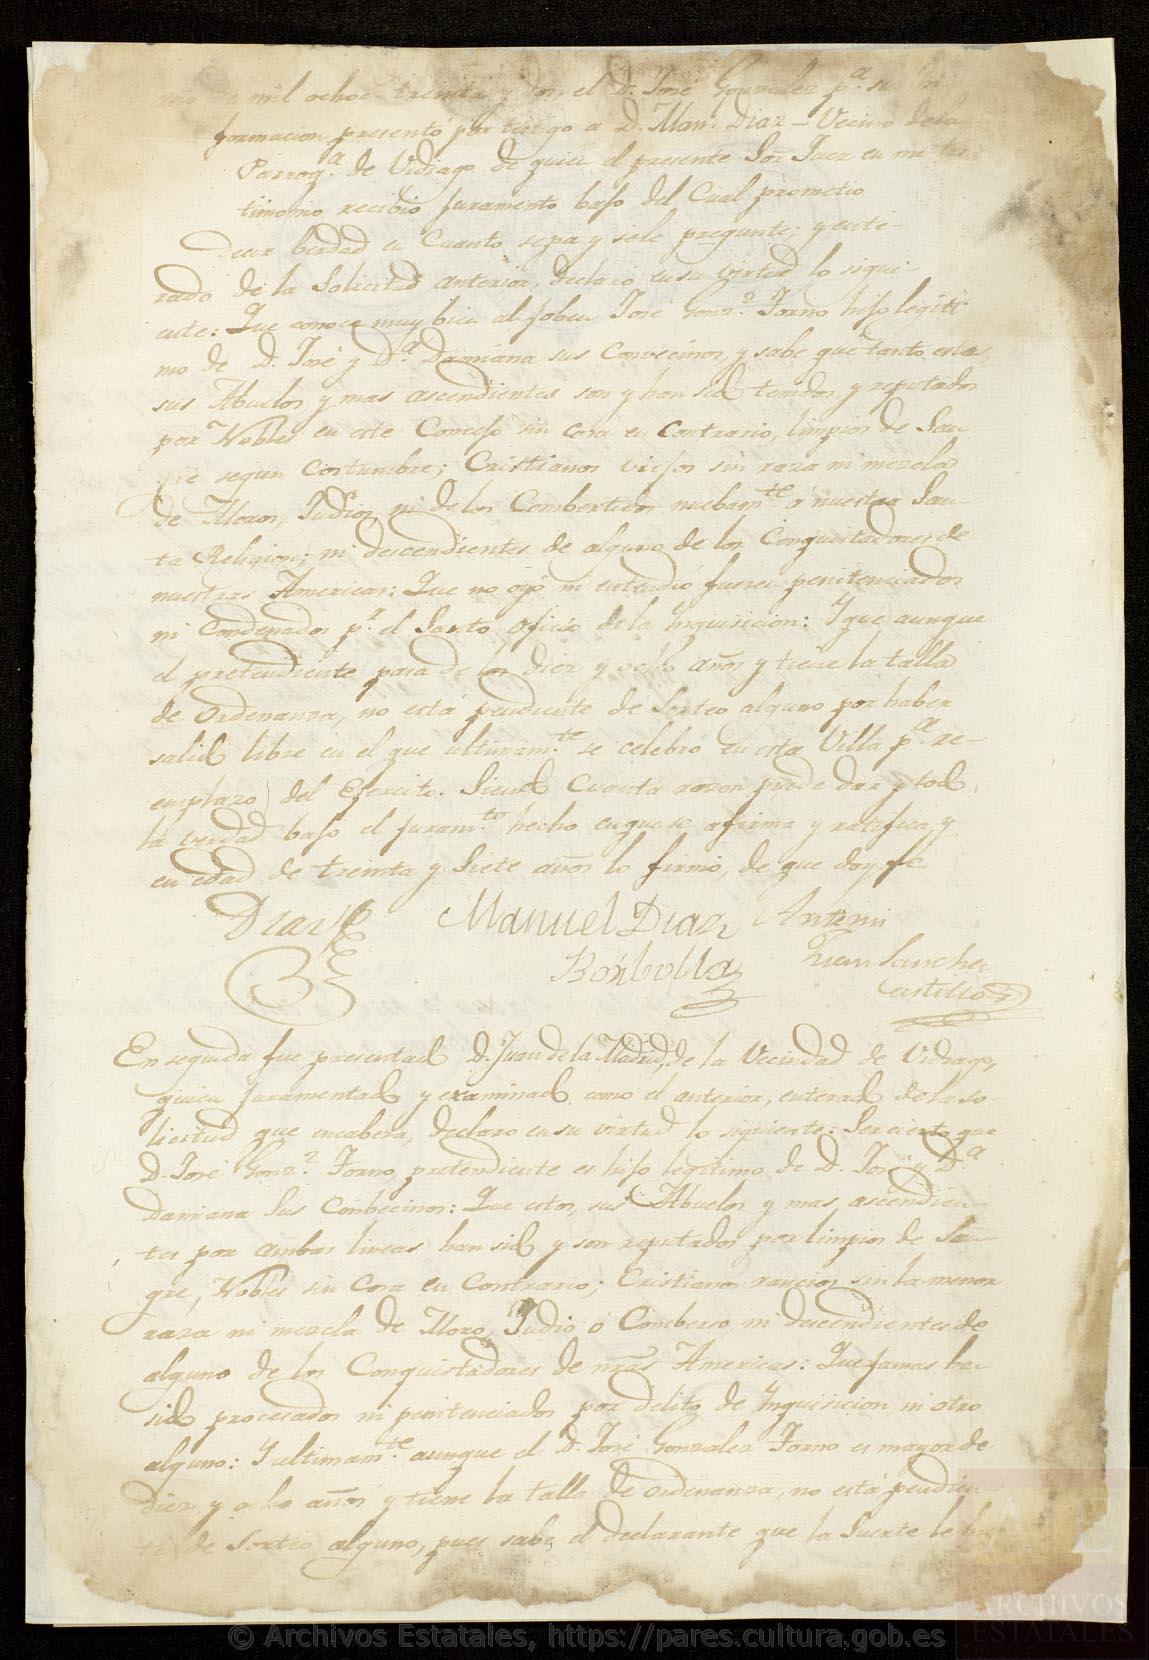 año de mil ochoc.s treinta y dos, el D. José Gonzalez p.a su in
formacion presentó por testigo a D. Man.l Diaz - Vecino de la
Parroq.a de Vidiago de quien el presente Sor Juez en mi tes
timonio recibió juramento bajo del Cual prometio
Decir berdad en Cuanto sepa y sele pregunte; y ente-
rado de la Solicitud anterior, declaró en su virtud lo sigui-
ente: Que conoce muy bien al joben José Gonz.z Torno hijo legiti
mo de D. José y D.a Damiana sus Convecinos, y sabe que tanto estos,
sus Abuelos y mas ascendientes son y han sido tenidos y reputados
por Nobles en este Concejo sin cosa en Contrario, limpios de San-
gre segun Costumbre; Cristianos viejos sin raza ni mezcla
de Moros, Judios, ni de los Combertidos nuebam.te á nuestra San-
ta Religion; ni descendientes de alguno de los Conquistadores de
nuestras Americas: Que no oyó ni entendió fuesen penitenciados
ni Condenados p.r el Santo Oficio de la Inquisicion: Y que aunque
el pretendiente pasa de los diez y ocho años y tiene la talla
de Ordenanza, no está pendiente de Sorteo alguno por haber
salido libre en el que ultimam.te se celebró en esta Villa p.a re-
emplazo del Egercito. Siendo Cuanta razon puede dar y todo
la verdad bajo el juram.to hecho en que se afirma y ratifica, y
en edad de treinta y Siete años lo firmó, de que doy fe
Diaz
Manuel Diaz
Borbolla
Antemi
Juan Sanchez
Castillo
En seguida fue presentado D. Juan de la Madrid, de la Vecindad de Vidiago,
quien juramentado y examinado como el anterior, enterado de la so
licitud que encabeza, declaró en su virtud lo siguiente: Ser cierto que
D. José Gonz.z Torno pretendiente es hijo legitimo de D. José y D.a
Damiana Sus Conbecinos: Que estos, sus Abuelos y mas ascendien-
tes por ambas lineas han sido y son reputados por limpios de San-
gre, Nobles sin Cosa en Contrario; Cristianos rancios sin la menor
raza ni mezcla de Moro, Judio ó Comberso, ni descendientes de
alguno de los Conquistadores de nras Americas: Que jamas han
sido procesados ni penitenciados por delito de Inquisicion ni otro
alguno: Y ultimam.te aunque el D. José Gonzalez Torno es mayor de
diez y ocho años y tiene la talla de ordenanza, no está pendien
te de Sorteo alguno, pues sabe el declarante que la Suerte le ha
ARCHIVOS
ESTATALES
© Archivos Estatales, https://pares.cultura.gob.es